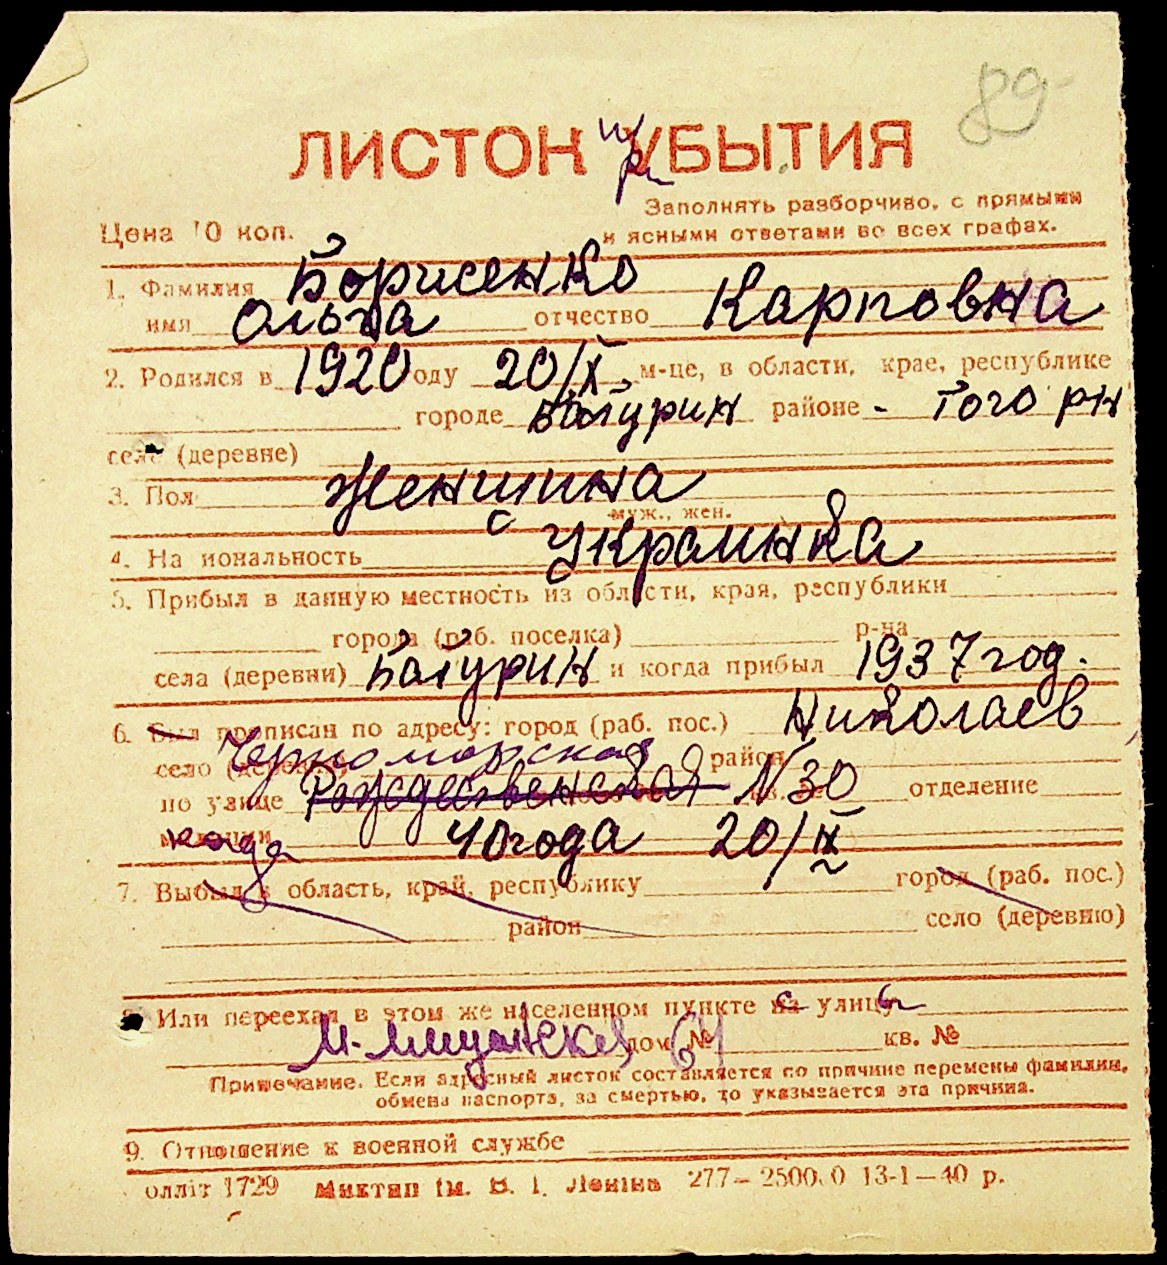 89
ЛИСТОК при УБЫТИЯ
Заполнять разборчиво, с прямыми
Цена 10 коп. и ясными ответами во всех графах.
1. Фамилия Борисенко
имя Ольга отчество Карповна
2. Родился в 1920 году 20/X м-це, в области, крае, республике
городе Батурин районе - того рн
село (деревне)
3. Пол Женщина
муж., жен.
4. Национальность Украинка
5. Прибыл в данную местность из области, края, республики
города (раб. поселка) р-на
села (деревни) Батурин и когда прибыл 1937 год.
6. Был прописан по адресу: город (раб. пос.) Николаев
село (деревня) Черноморская район
по улице Рождественская N 30 отделение
милиции когда 40 года 20/IX
7. Выбыл в область, край, республику город (раб. пос.)
район село (деревню)
8. Или переехал в этом же населенном пункте на с улицу
М. дом № 64 кв. №
Примечание. Если адресный листок составляется по причине перемены фамилии,
обмена паспорта, за смертью, то указывается эта причина.
9. Отношение к военной службе
оллiт 1729 Миктип iм. В. I. Ленiна 277—2500.0 13-1—40 р.